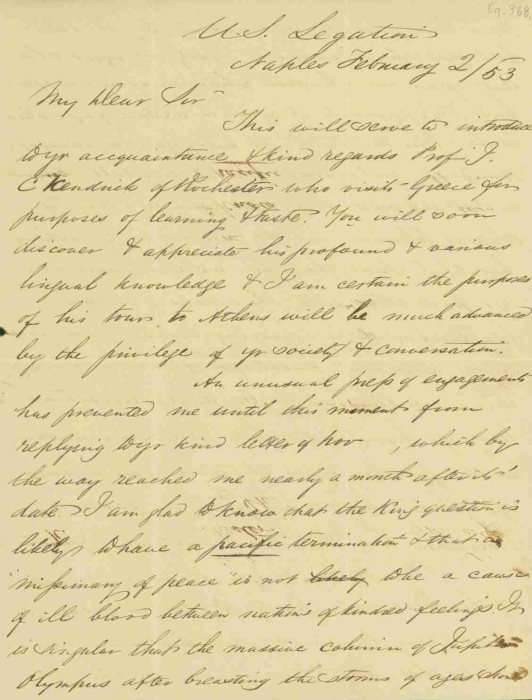 En. 368
U.S. Legation
Naples February 2/53
My Dear Sir
This will serve to introduce
to yr acquaintance & kind regards Prof J.
C Kendrick of Rochester who visits Greece for
purposes of learning & taste. You will soon
discover & appreciate his profound & various
lingual knowledge & I am certain the purposes
of his tour to Athens will be much advanced
by the privilege of yr society & conversation.
An unusual press of engagements
has prevented me until this moment from
replying to yr kind letter of Nov , which by
the way reached me nearly a month after its
date. I am glad to know that the King question is
likely to have a pacific termination & that a
missionary of peace is not likely to be a cause
of ill blood between nations of kindred feelings. It
is singular that the massive column of Jupiter
Olympus after breasting the storms of ages should